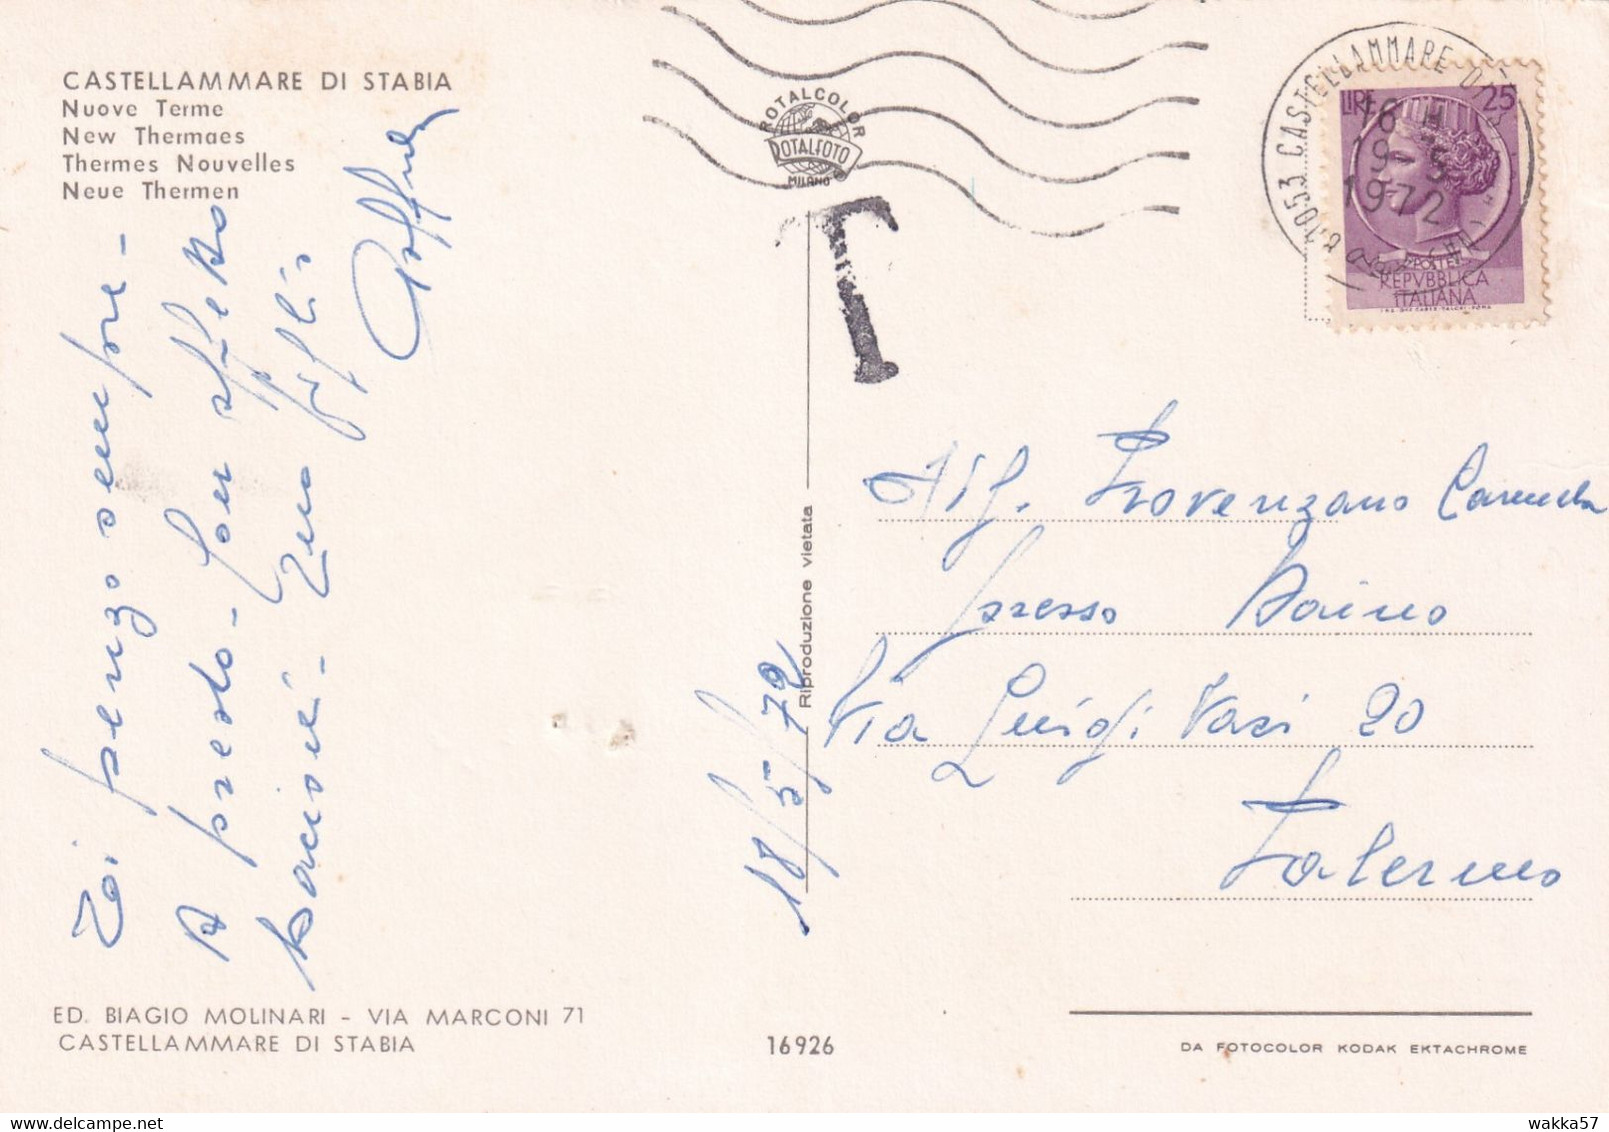 CASTELLAMMARE DI STABIA
Nuove Terme
New Thermaes
Thermes Nouvelles
Neue Thermen
Vi penzo sempre -
A presto - Con affetto
bacioni -
figlio
ROTALCOLOR
ROTALFOTO
MILANO
T
80053 CASTELLAMMARE DI
19-5
1972
LIRE 25
POSTE
REPVBBLICA
ITALIANA
Provenzano Carmela
presso Daino
Via Luigi Vasi 20
Palermo
18/5/72
Riproduzione vietata
ED. BIAGIO MOLINARI - VIA MARCONI 71
CASTELLAMMARE DI STABIA
16926
DA FOTOCOLOR KODAK EKTACHROME
wakka57